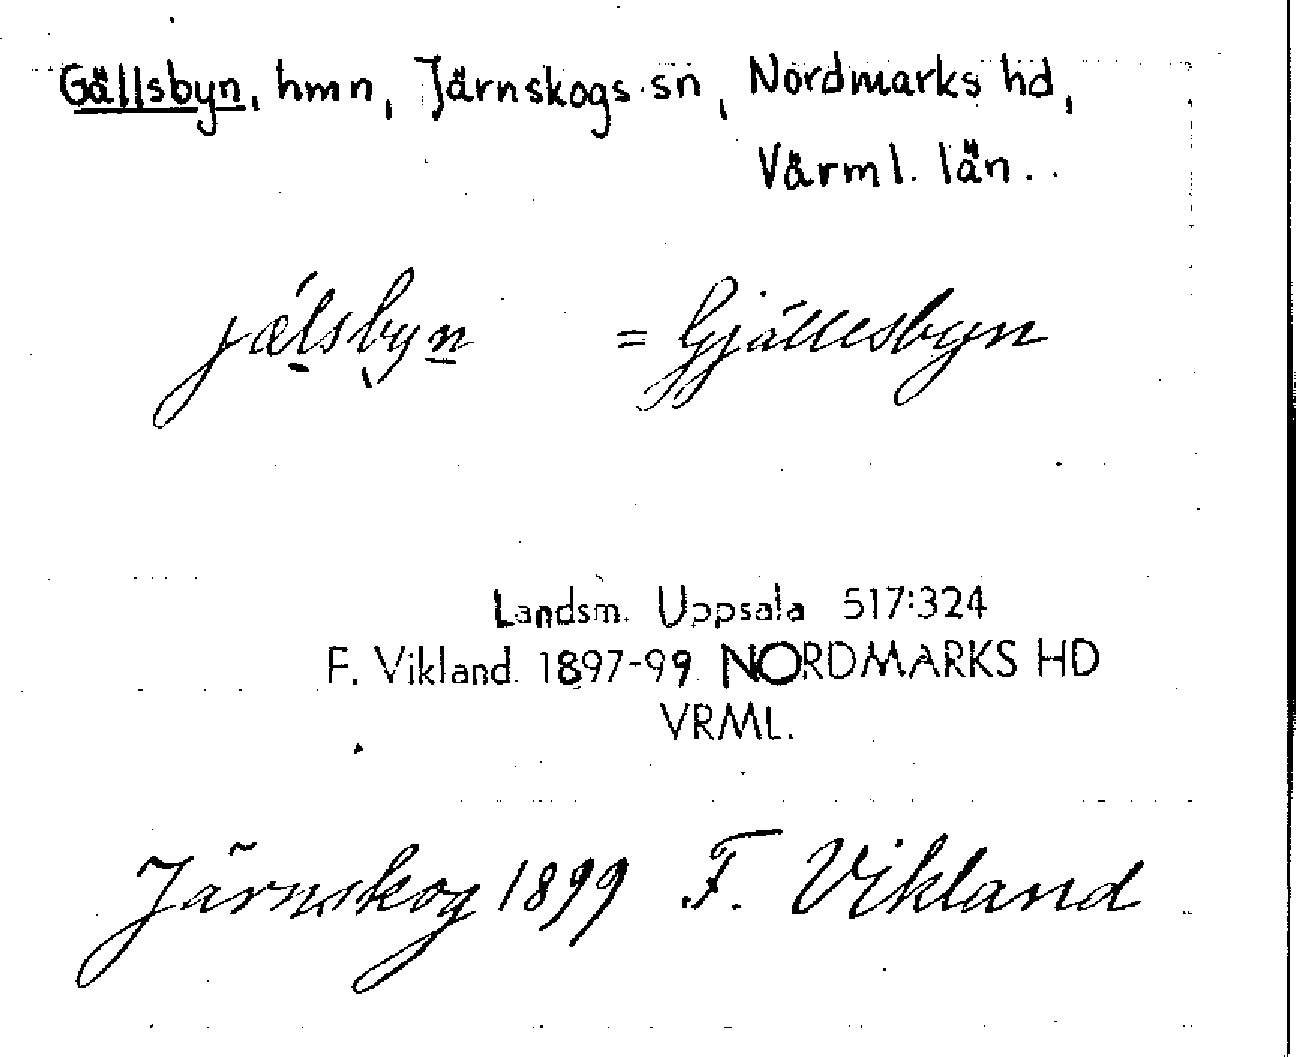 Gällsbyn, hmn, Järnskogs sn, Nordmarks hd,
Värml. län.
jælsbyn = Gjällesbyn
Landsm. Uppsala 517:324
F. Vikland 1897-99 NORDMARKS HD
VRML.
Järnskog 1899 F. Vikland